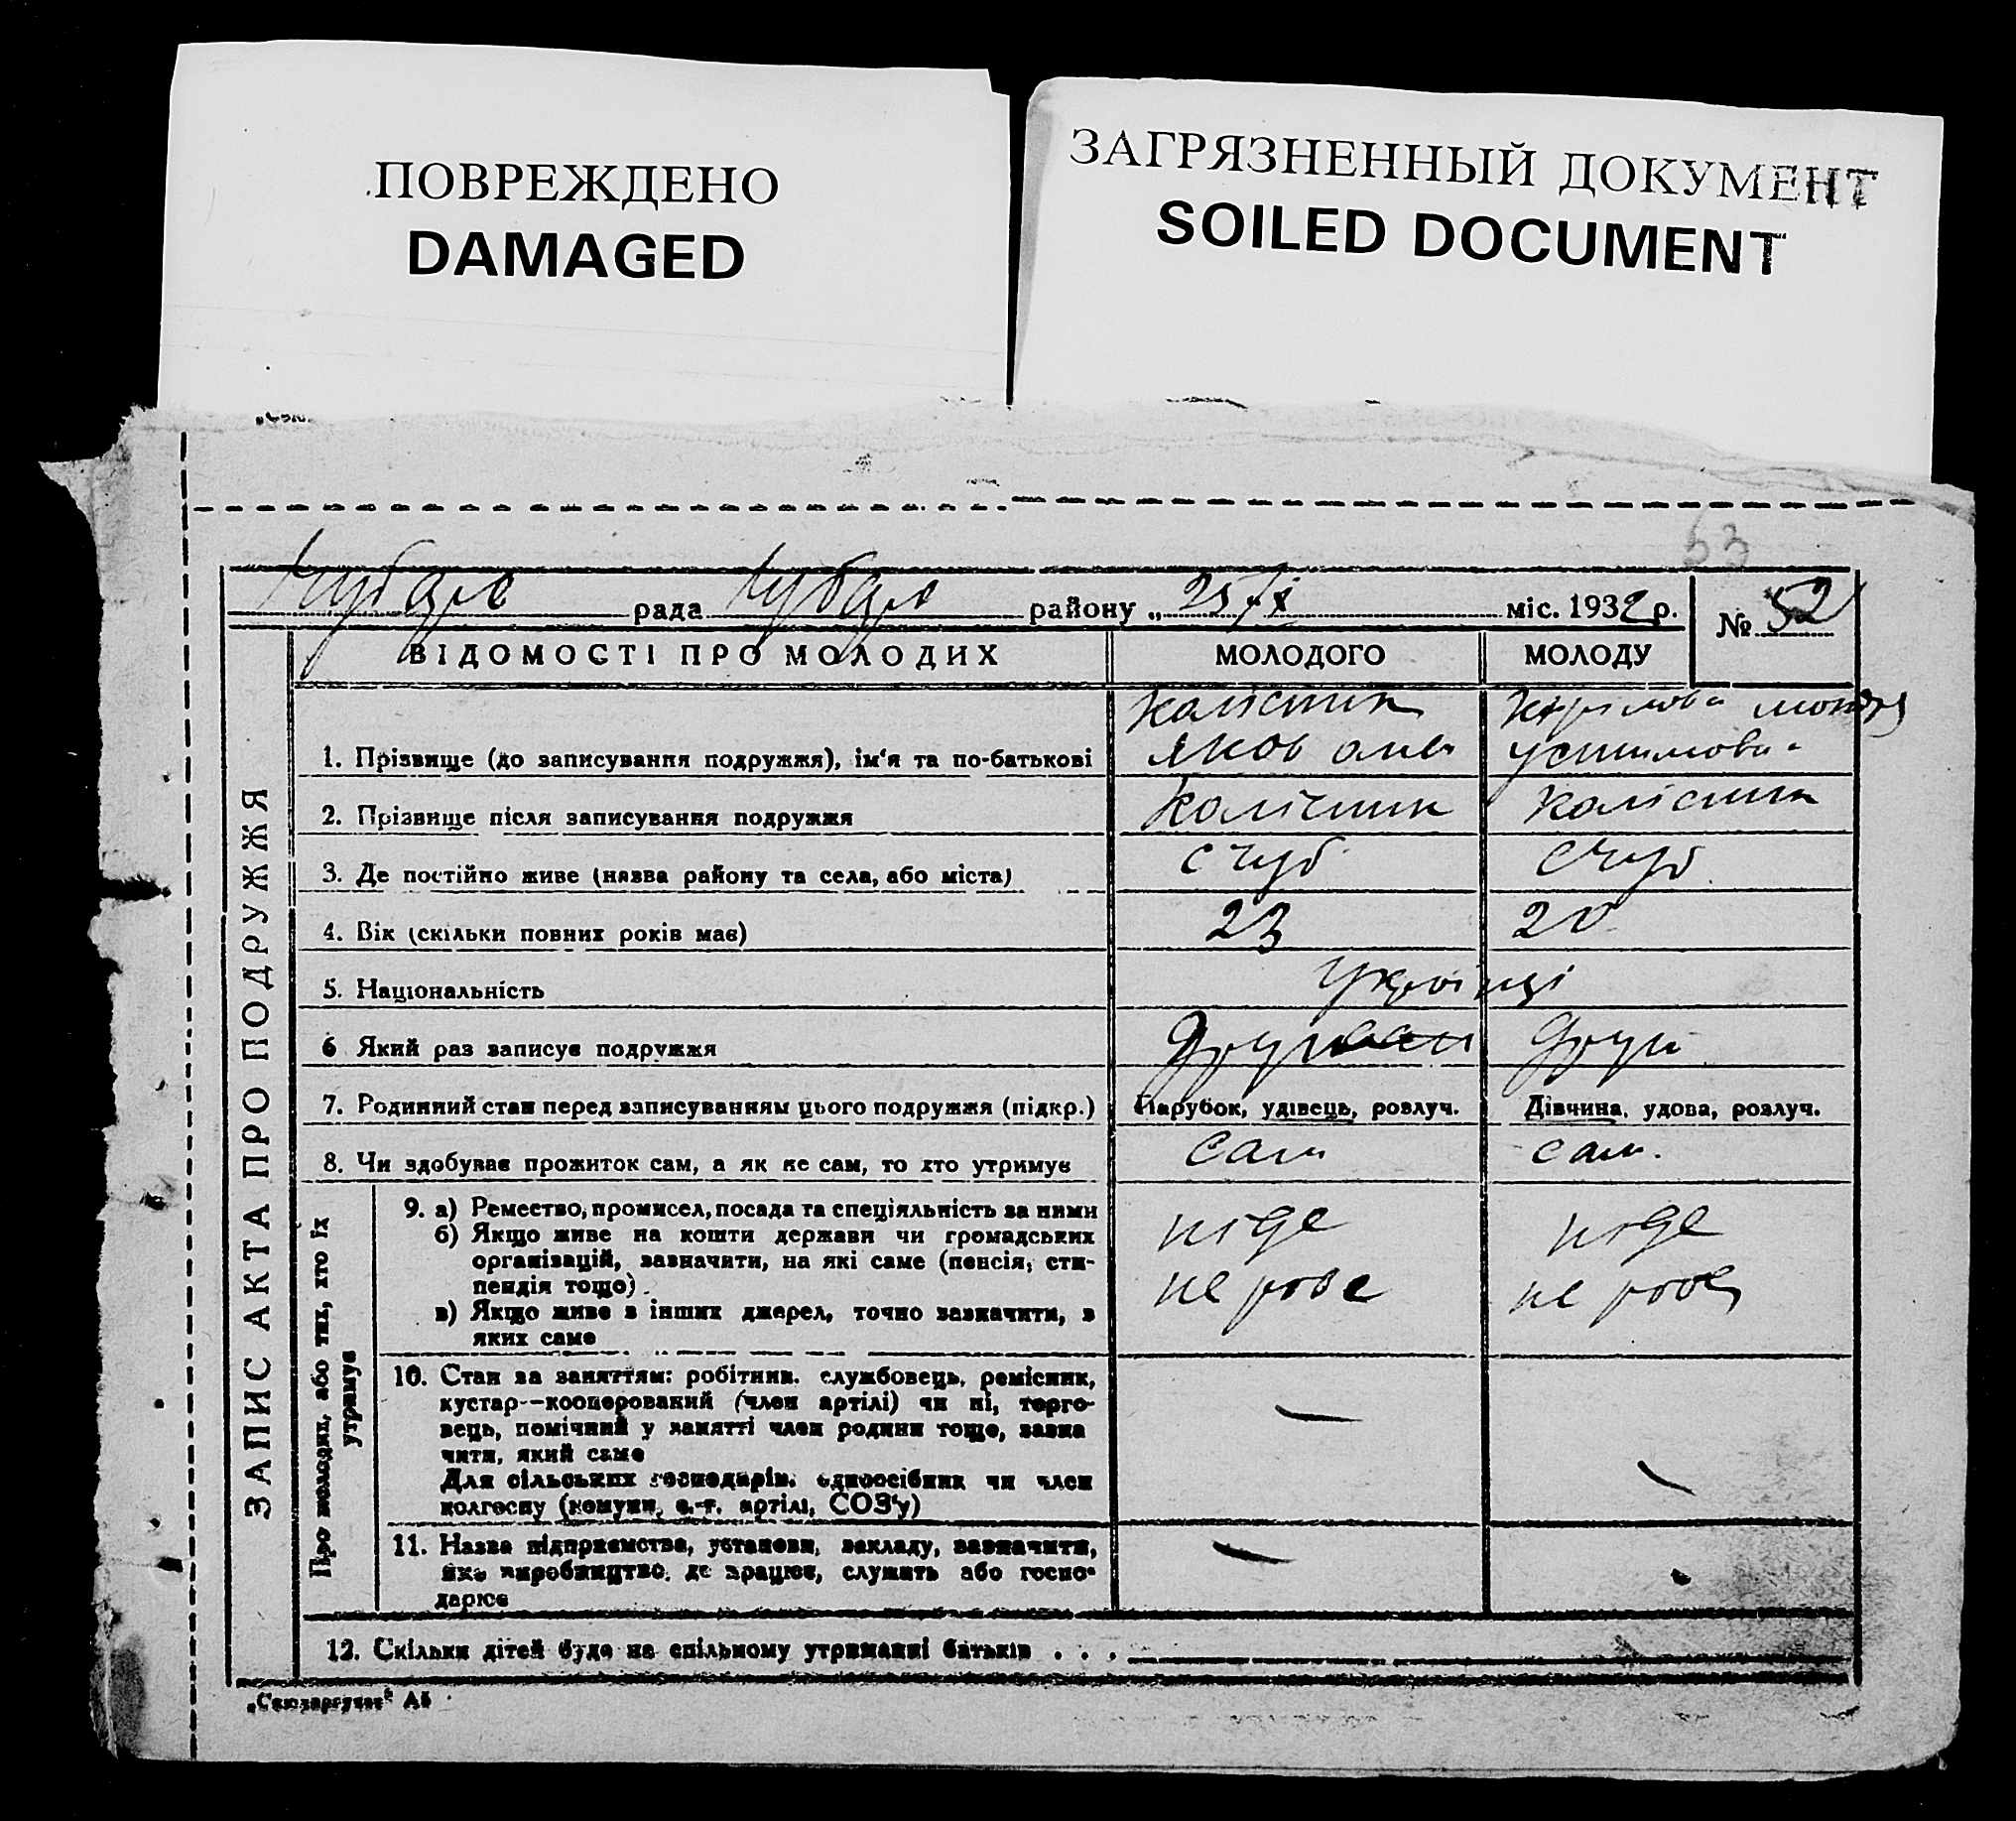 ПОВРЕЖДЕНО
DAMAGED
ЗАГРЯЗНЕННЫЙ ДОКУМЕНТ
SOILED DOCUMENT
53
рада району „ 25/ міс. 1932 р. № 52
ВІДОМОСТІ ПРО МОЛОДИХ МОЛОДОГО МОЛОДУ
ЗАПИС АКТА ПРО ПОДРУЖЖЯ
Калістик
1. Прізвище (до записування подружжя), ім'я та по-батькові Яков устимова
2. Прізвище після записування подружжя Калістик Калістик
3. Де постійно живе (назва району та села, або міста) с чуб с чуб
4. Вік (скільки повних років має) 23 20
5. Національність Українці
6 Який раз записує подружжя Други
7. Родинний стан перед записуванням цього подружжя (підкр.) Парубок, удівець, розлуч. Дівчина, удова, розлуч.
8. Чи здобуває прожиток сам, а як не сам, то хто утримує сам сам.
Про молодих, або тих, хто їх утримує
9. а) Ремество, промисел, посада та спеціяльність за ними
б) Якщо живе на кошти держави чи громадських нігде нігде
організацій, зазначити, на які саме (пенсія, сти-
пендія тощо). не робе не робе
в) Якщо живе з інших джерел, точно зазначити, з
яких саме
10. Стан за заняттям: робітник, службовець, ремісник,
кустар--кооперований (член артілі) чи ні, торго-
вець, помічний у занятті член родини тощо, зазна
чити, який саме
Для сільських господарів: одноосібник чи член
колгоспу (комуни, с.-г. артілі, СОЗ'у)
11. Назва підприємства, установи, закладу, зазначити,
яке виробництво, де працює, служить або госпо-
дарює
12. Скільки дітей буде на спільному утриманні батьків . . .